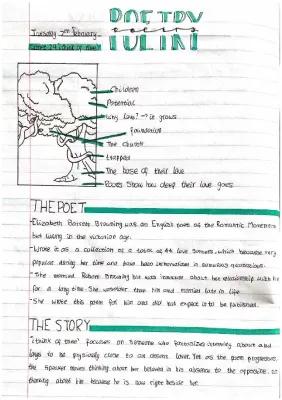 POETRY
Tuesday 2nd february
Sonnet 29 'I think of thee!'
Children
Potential
Why love? → it grows
foundation
The church
trapped
The base of their love
Roots show how deep their love goes
THE POET
Elizabeth Barrett Browning was an English poet of the Romantic Movement
but living in the victorian age.
Wrote it as a collection of a total of 44 love sonnets, which became very
popular during her time and have been immortalised in numerous
She married Robert Browning but was insecure about her relationship with him
for a long time. She was older than him and married late in life
She wrote this poem for him and did not expect it to be published.
THE STORY
'I think of thee' focuses on someone who fantasizes/dreaming about and
longs to be physically close to an absent lover. Yet as the poem progresses,
the speaker moves thinking about her beloved in his absence to the opposite, not
thinking about him, because he is now right beside her.